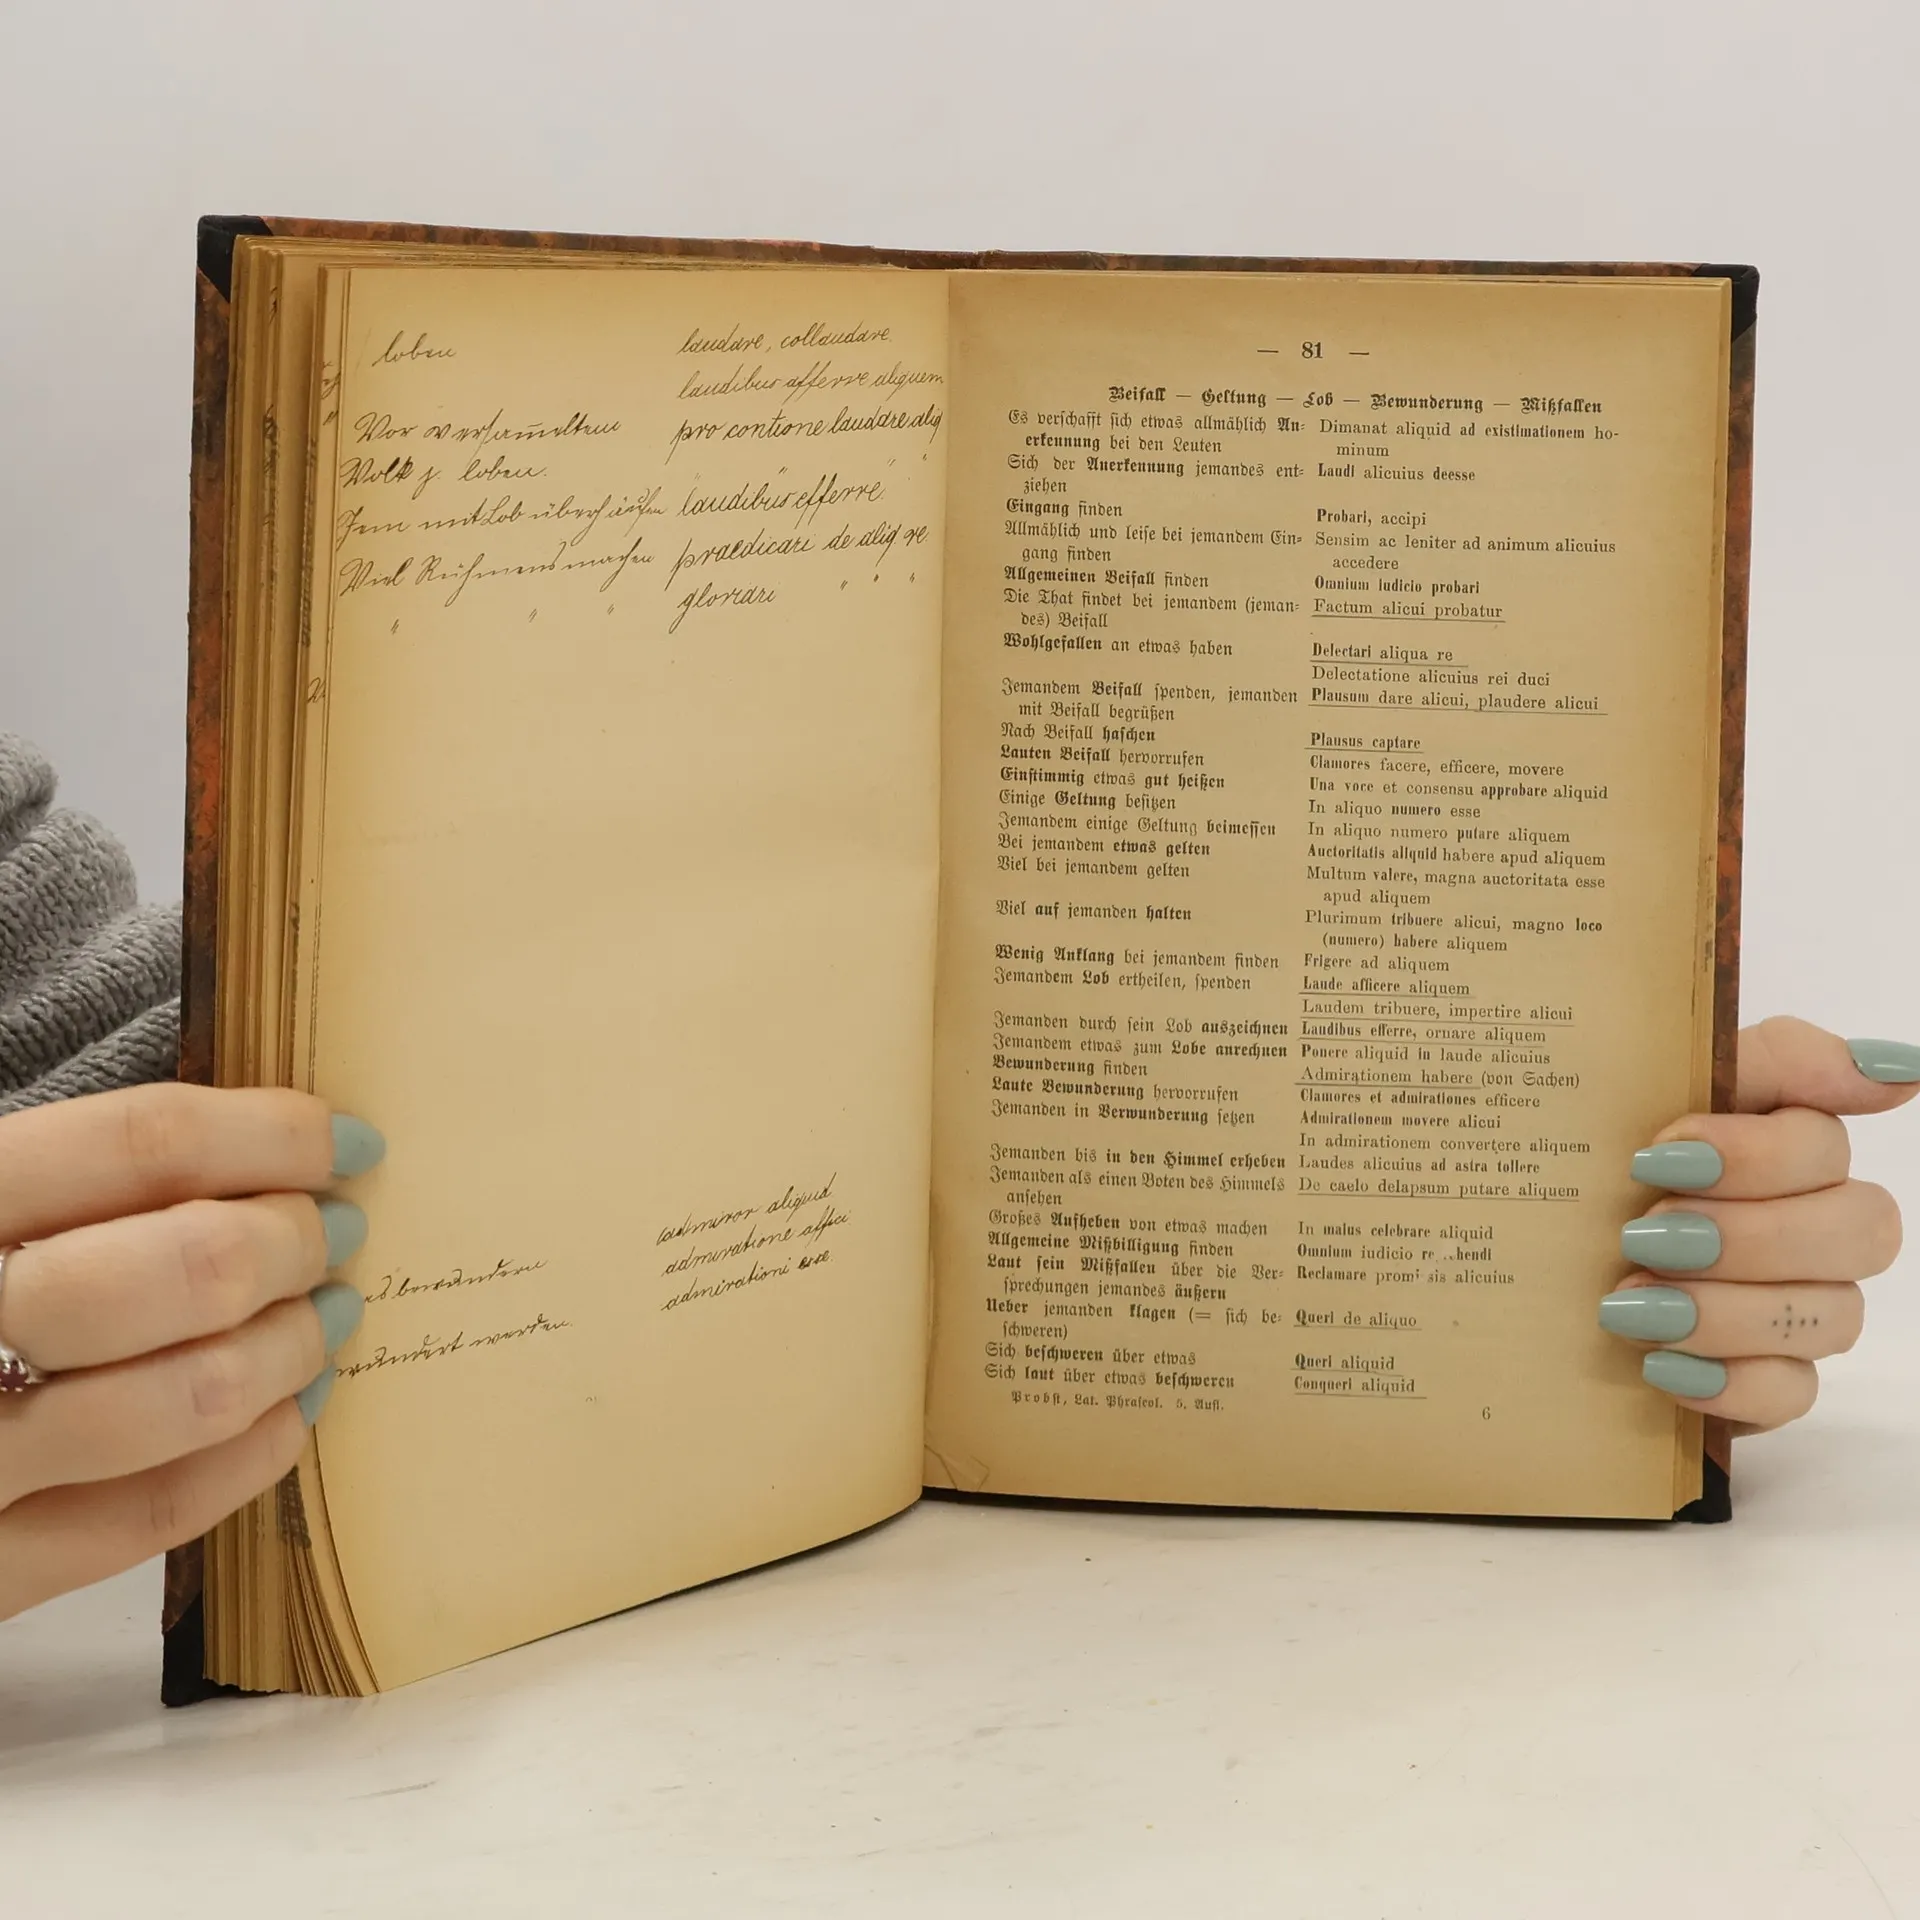 loben laudare, collaudare.
laudibus afferre aliquem
Vor versam̅eltem pro contione laudare aliq
Volk j. loben. " " "
Jem mit Lob überhäufen laudibus efferre.
Viel Rühmens machen praedicari de aliq re.
" " " gloriari " " "
admiror aliquid
bewundern admiratione affici
admirationi esse.
wundert werden.
— 81 —
Beifall — Geltung — Lob — Bewunderung — Mißfallen
Es verschafft sich etwas allmählich An= Dimanat aliquid ad existimationem ho-
erkennung bei den Leuten minum
Sich der Anerkennung jemandes ent= Laudi alicuius deesse
ziehen
Eingang finden Probari, accipi
Allmählich und leise bei jemandem Ein= Sensim ac leniter ad animum alicuius
gang finden accedere
Allgemeinen Beifall finden Omnium iudicio probari
Die That findet bei jemandem (jeman= Factum alicui probatur
des) Beifall
Wohlgefallen an etwas haben Delectari aliqua re
Delectatione alicuius rei duci
Jemandem Beifall spenden, jemanden Plausum dare alicui, plaudere alicui
mit Beifall begrüßen
Nach Beifall haschen Plausus captare
Lauten Beifall hervorrufen Clamores facere, efficere, movere
Einstimmig etwas gut heißen Una voce et consensu approbare aliquid
Einige Geltung besitzen In aliquo numero esse
Jemandem einige Geltung beimessen In aliquo numero putare aliquem
Bei jemandem etwas gelten Auctoritatis aliquid habere apud aliquem
Viel bei jemandem gelten Multum valere, magna auctoritata esse
apud aliquem
Viel auf jemanden halten Plurimum tribuere alicui, magno loco
(numero) habere aliquem
Wenig Anklang bei jemandem finden Frigere ad aliquem
Jemandem Lob ertheilen, spenden Laude afficere aliquem
Laudem tribuere, impertire alicui
Jemanden durch sein Lob auszeichnen Laudibus efferre, ornare aliquem
Jemandem etwas zum Lobe anrechnen Ponere aliquid in laude alicuius
Bewunderung finden Admirationem habere (von Sachen)
Laute Bewunderung hervorrufen Clamores et admirationes efficere
Jemanden in Verwunderung setzen Admirationem movere alicui
In admirationem convertere aliquem
Jemanden bis in den Himmel erheben Laudes alicuius ad astra tollere
Jemanden als einen Boten des Himmels De caelo delapsum putare aliquem
ansehen
Großes Aufheben von etwas machen In maius celebrare aliquid
Allgemeine Mißbilligung finden Omnium iudicio
Laut sein Mißfallen über die Ver= Reclamare promissis alicuius
sprechungen jemandes äußern
Ueber jemanden klagen (= sich be= Queri de aliquo
schweren)
Sich beschweren über etwas Queri aliquid
Sich laut über etwas beschweren Conqueri aliquid
Probst, Lat. Phraseol. 5. Aufl. 6